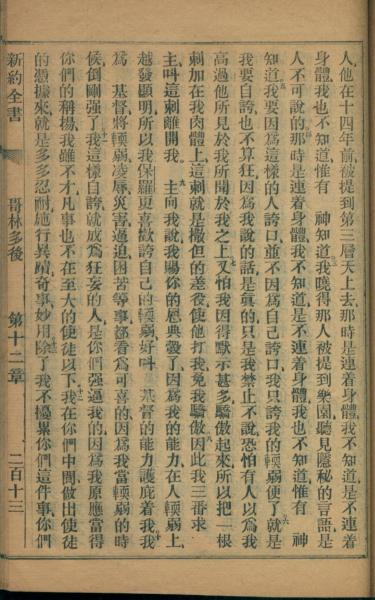 人他在十四年前被提到第三層天上去那時是連着身體我不知道是不連着
身體我也不知道惟有　神知道我曉得那人被提到樂園聽見隱秘的言語是
人不可說的那時是連着身體我不知道是不連着身體我也不知道惟有　神
知道我要因爲這樣的人誇口並不因爲自己誇口我只誇我的輭弱便了就是
我要自誇也不算狂因爲我說的話是眞的只是我禁止不說恐怕有人以爲我
高過他所見於我所聞於我之上又怕我因得默示甚多驕傲起來所以把一根
刺加在我肉體上這刺就是撒但的差役使他打我免我驕傲因此我三番求
主叫這刺離開我　主向我說我賜你的恩典彀了因爲我的能力在人輭弱上
越發顯明所以我保羅更喜歡誇自己的輭弱好叫　基督的能力護庇着我我
爲　基督將輭弱凌辱災害逼迫困苦等事都看爲可喜的因爲我當輭弱的時
候倒剛强了我這樣自誇就成爲狂妄的人是你們强逼我的因爲我原應當得
你們的稱揚我雖不才凡事也不在至大的使徒以下我在你們中間做出使徒
的憑據來就是多多忍耐施行異蹟奇事妙用除了我不擾累你們這件事你們
新約全書　哥林多後　第十二章　二百十三